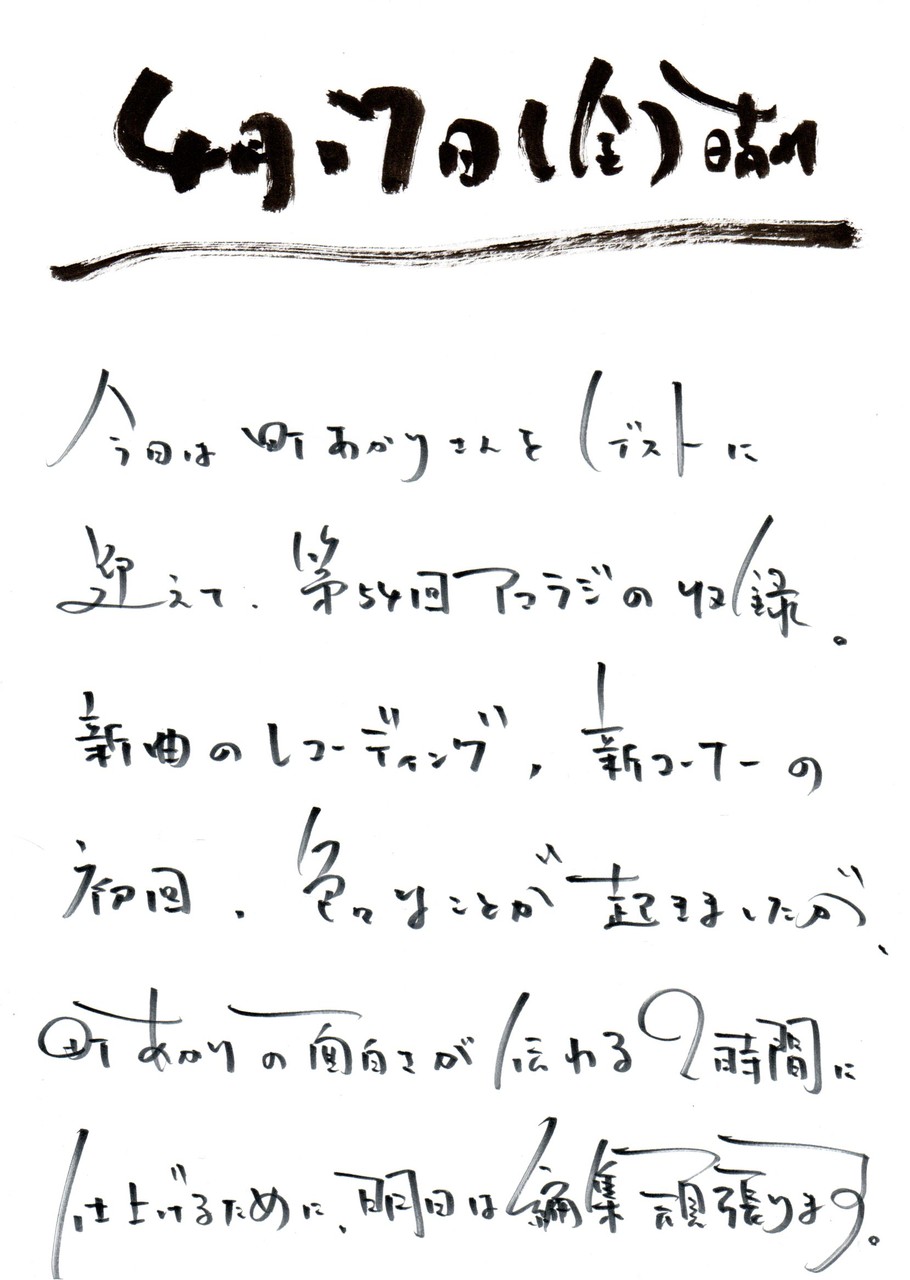 4月・7日(金)晴れ
今日は町あかりさんをゲストに
迎えて、第54回アコラジの収録。
新曲のレコーディング、新コーナーの
初回、色々なことが起きましたが、
町あかりの面白さが伝わる2時間に
仕上げるために、明日は編集頑張ります。